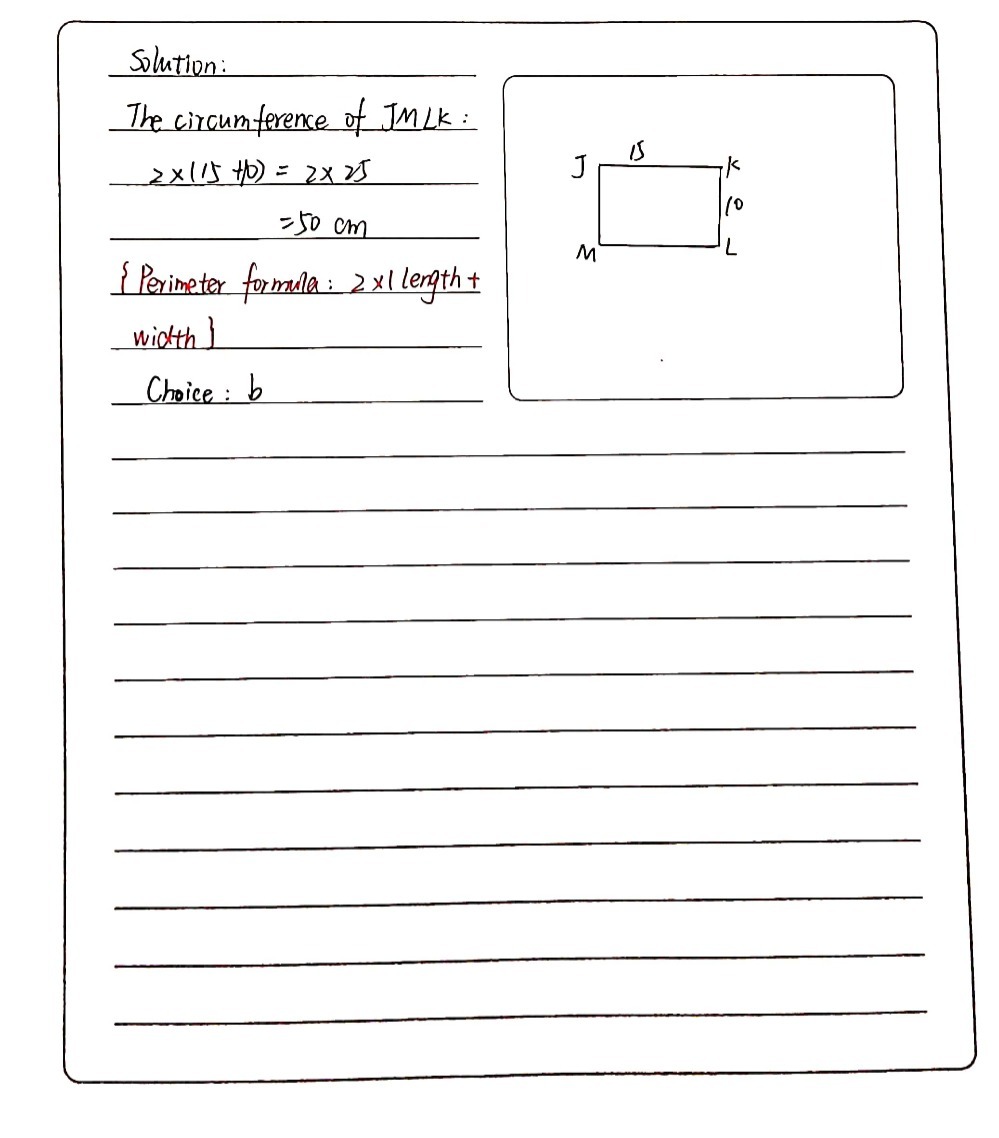 Solution:
The circumference of JMLK:
2×(15+10) = 2×25
=50 cm
{Perimeter formula: 2×(length+
width}
Choice: b
15
J
K
10
M
L